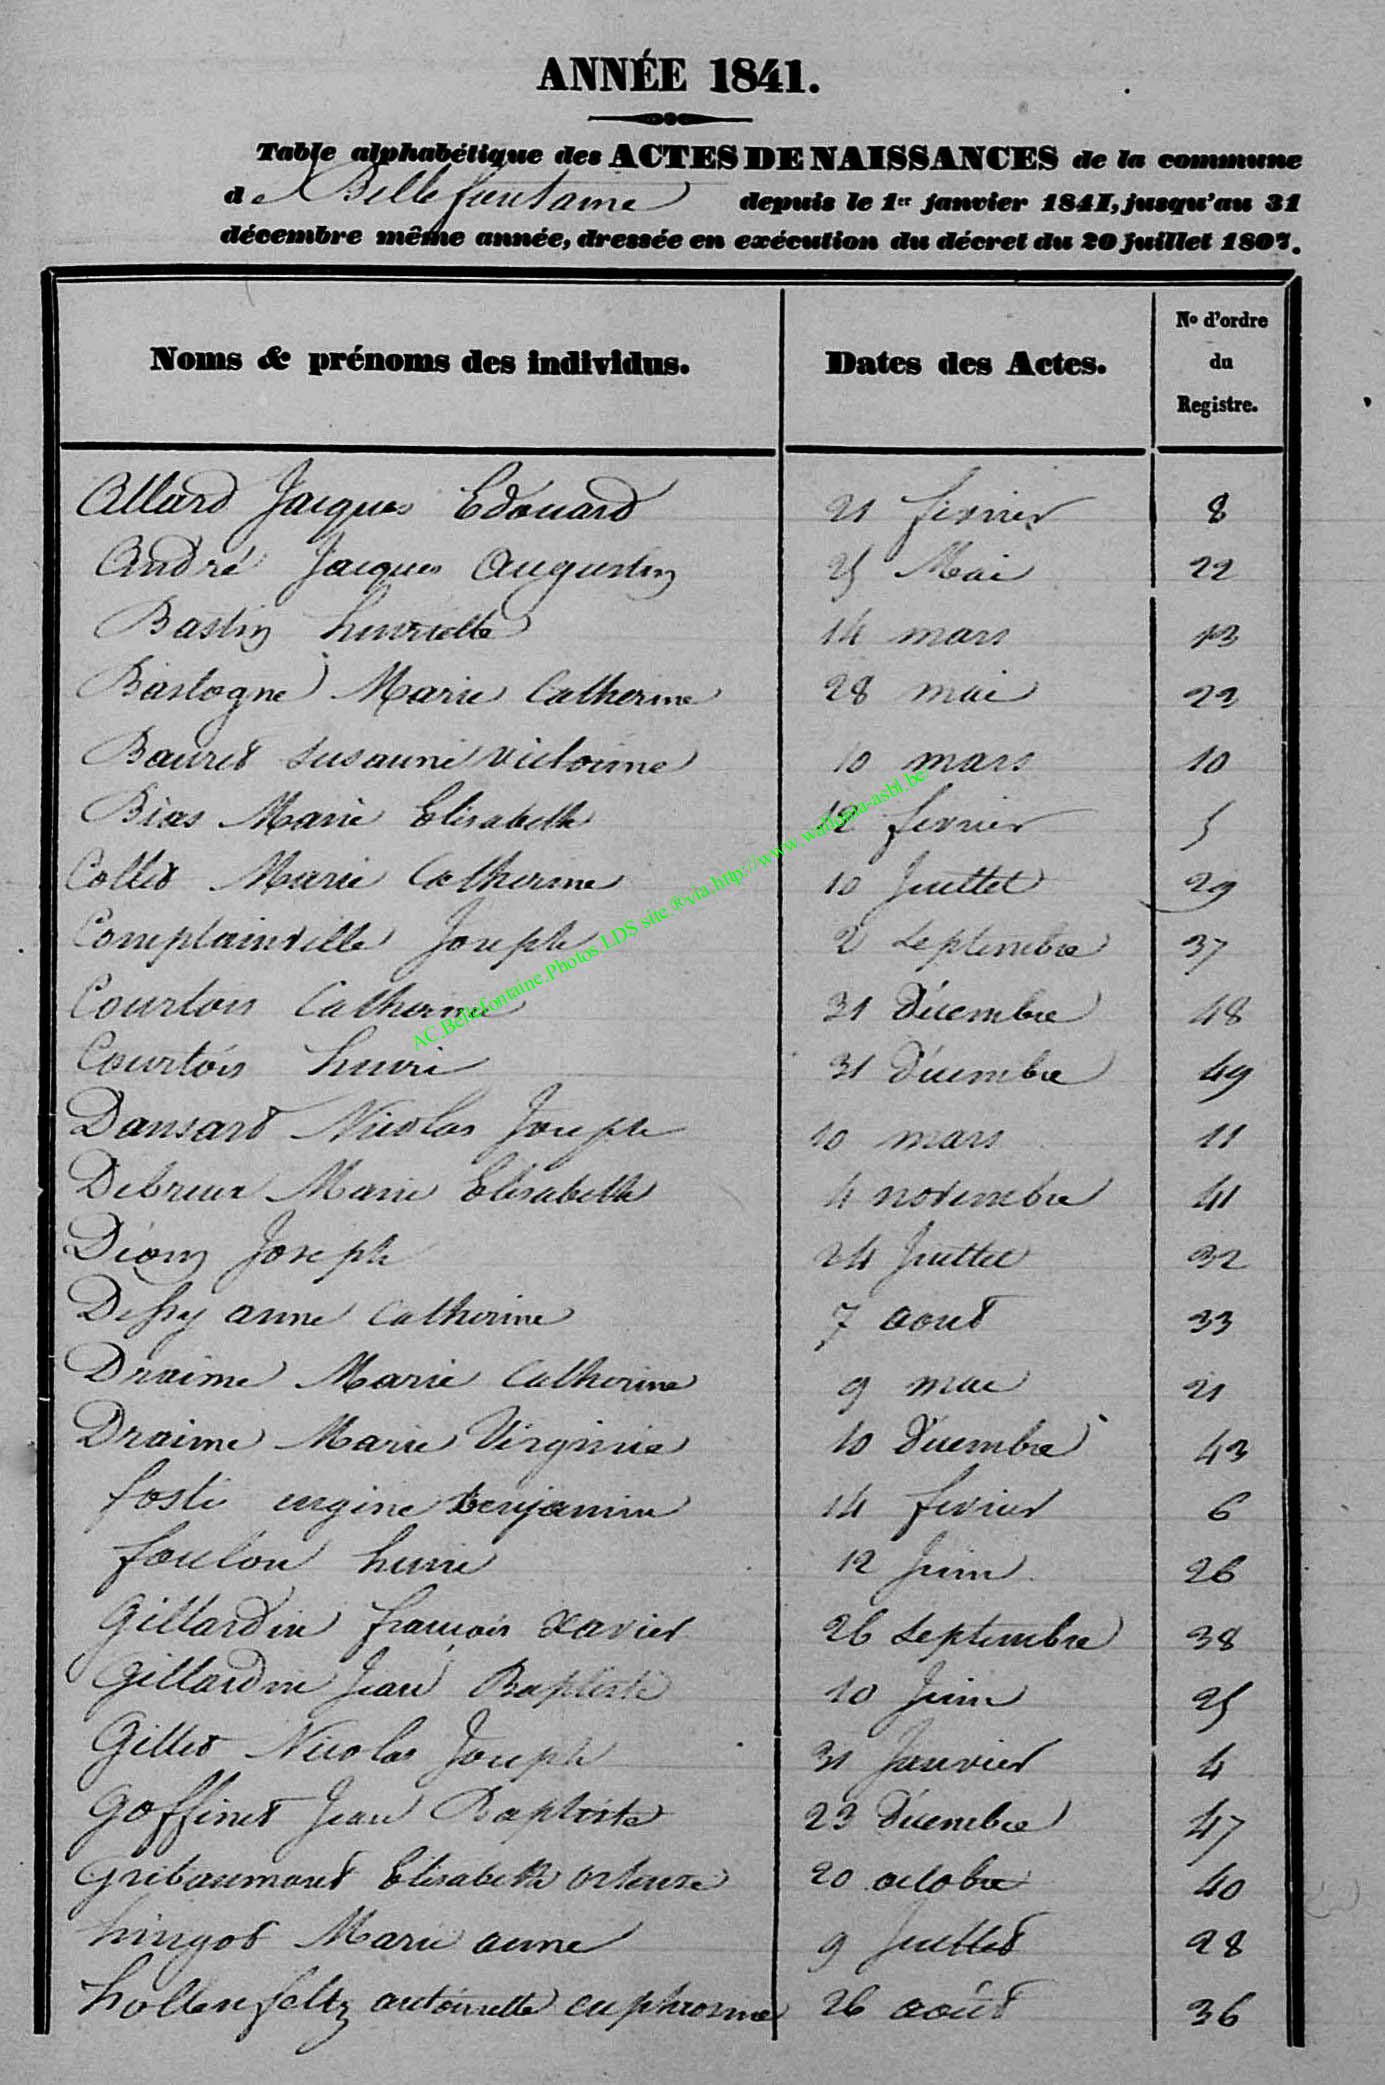 ANNÉE 1841.
Table alphabétique des ACTES DE NAISSANCES de la commune
de Bellefontaine depuis le 1er janvier 1841, jusqu'au 31
décembre même année, dressée en exécution du décret du 20 juillet 1807.
Noms & prénoms des individus. Dates des Actes. No d'ordre du Registre.
Allard Jacques Edouard 21 fevrier 8
André Jacques Augustin 25 Mai 22
Bastin henriette 14 mars 13
Bastogne Marie Catherine 28 mai 23
Bauret Susanne victorine 10 mars 10
Bias Marie Elisabeth 12 fevrier 5
Collet Marie Catherine 10 Juillet 29
Complainville Joseph 2 Septembre 37
Courtois Catherine 31 Décembre 48
Courtois henri 31 Décembre 49
Dansart Nicolas Joseph 10 mars 11
Debreux Marie Elisabeth 4 novembre 41
Dion Joseph 24 Juillet 32
Dessy anne Catherine 7 aout 33
Draime Marie Catherine 9 mai 21
Draime Marie Virginie 10 Décembre 43
fosti eugine benjamin 14 fevrier 6
foulon henri 12 Juin 26
Gillardin françois xavier 26 Septembre 38
Gillardin Jean Baptiste 10 Juin 25
Gillet Nicolas Joseph 31 Janvier 4
Goffinet Jean Baptiste 23 Décembre 47
Gribaumont Elisabeth ortense 20 octobre 40
hingot Marie anne 9 Juillet 28
hollenfeltz antoinette euphrosine 26 août 36
AC.Bellefontaine.Photos.LDS site ® via.http://www.wallonia-asbl.be/